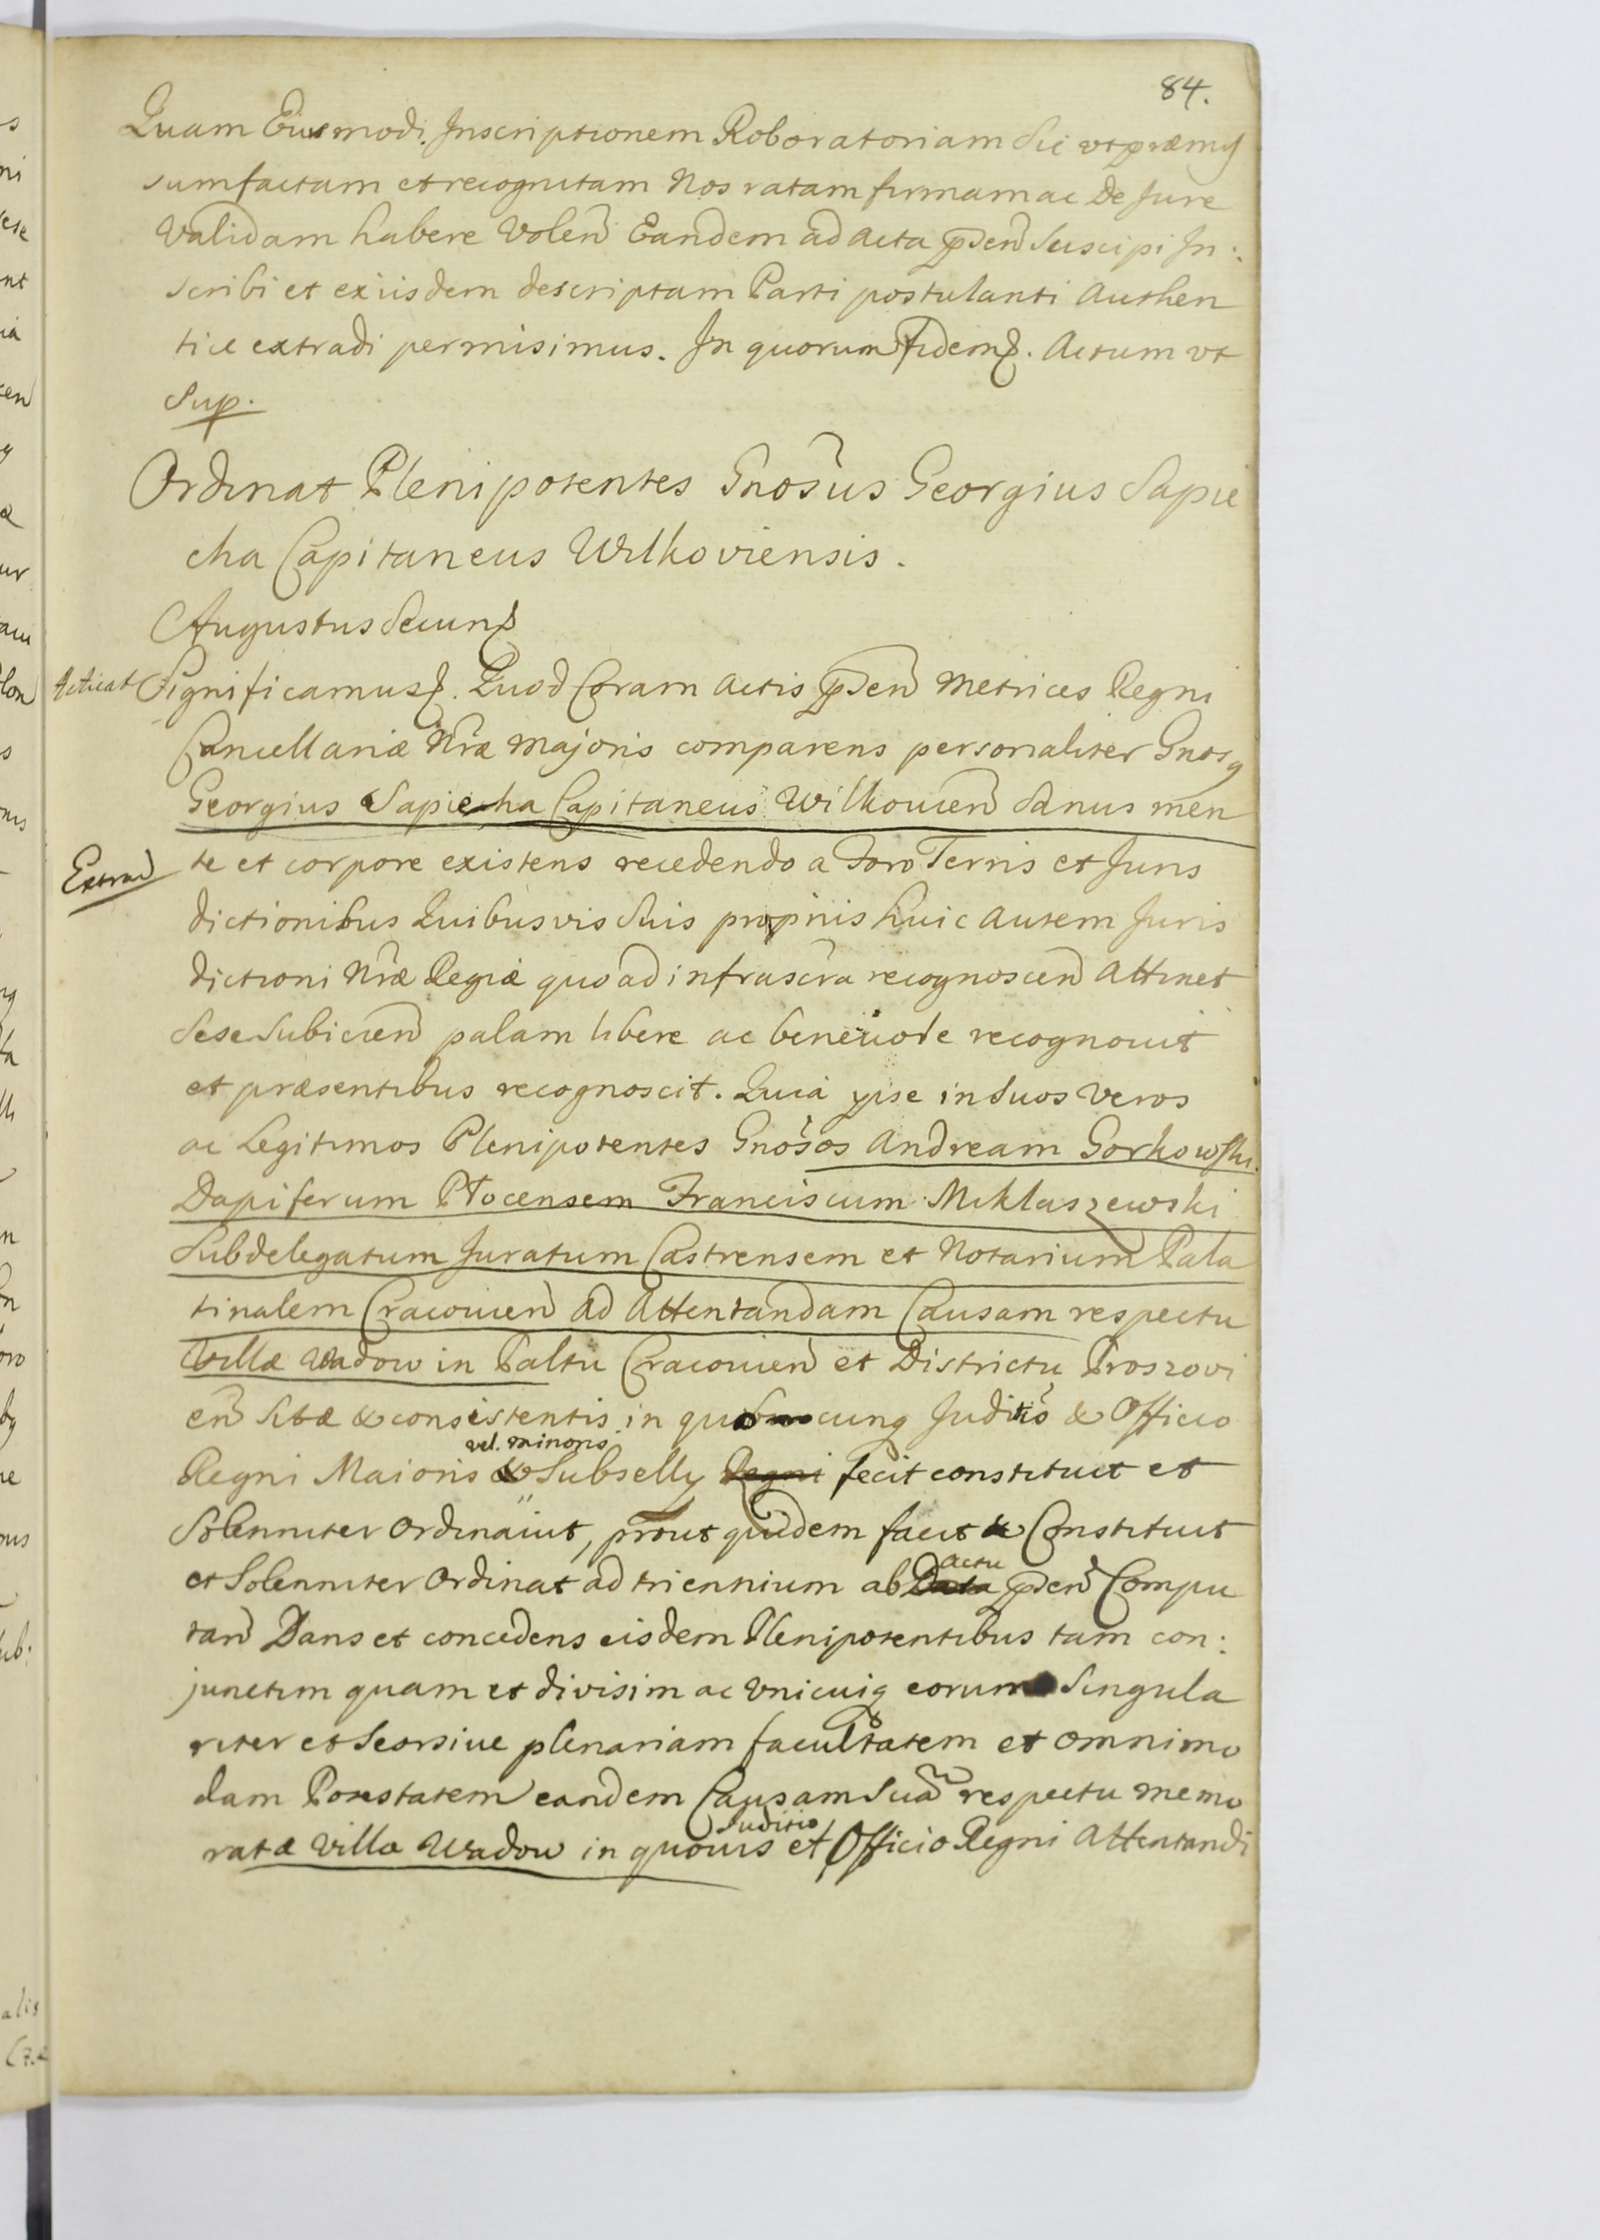 84.
Quam Eiusmodi Inscriptionem Roboratoriam Sic vt præmis
sum factam et recognitam Nos ratam firmam ac De Jure
Validam habere Volen Eandem ad Acta pden Suscipi In:
scribi et exiisdem descriptam Parti postulanti Authen
tice extradi permisimus. In quorum fidem. Actum vt
Sup.
Ordinat Plenipotentes Gnosus Georgius Sapie
cha Capitaneus Wilkoviensis.
Augustus Secund
Acticat Significamus. Quod Coram Actis pden Metrices Regni
Cancellariæ Nræ Majoris comparens personaliter Gnosq
Georgius Sapiecha Capitaneus Wilkovien Sanus men
Extrad te et corpore existens recedendo a Foro Terris et Juris
dictionibus Quibusvis Suis proprijs huic Autem Juris
dictioni Nræ Regiæ quoad infrascra recognoscen Attinet
Sese Subicien palam libere ac beneuole recognouit
et præsentibus recognoscit. Quia ipse in Suos Veros
ac Legitimos Plenipotentes Gnosos Andream Gorkowski
Dapiferum Plocensem Franciscum Miklaszewski
Subdelegatum Juratum Castrensem et Notarium Pala
tinalem Cracouien ad Attentandam Causam respectu
Villæ Wadow in Paltu Cracouien et Districtu Proszovi
en Sitæ & consistentis in quocunq Juditio & Officio
vel minoris
Regni Maioris & Subselly Regni fecit constituit et
Solenniter Ordinauit, prout quidem facit & Constituit
actu
et Solenniter Ordinat ad triennium ab Data pden Compu
tan Dans et concedens eisdem Plenipotentibus tam con:
junctim quam et divisim ac Vnicuiq eorum Singula
riter et Seorsiue plenariam facultatem et omnimo
dam Potestatem eandem Causam Suã respectu memo
Juditio
ratæ Villæ Wadow in quouis et Officio Regni Attentandi